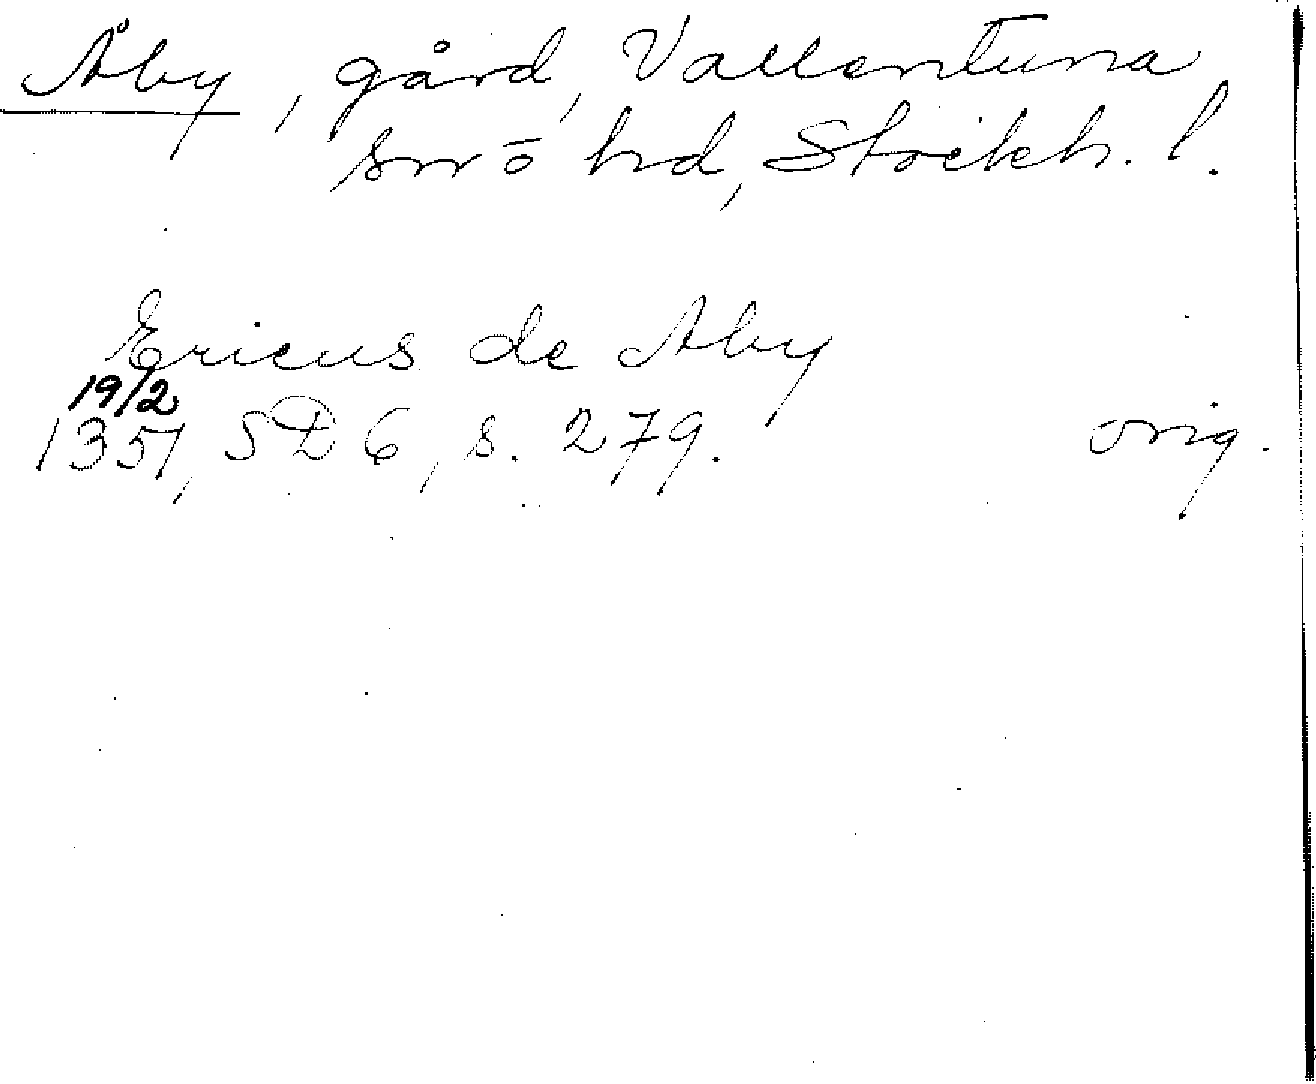 Åby, gård, Vallentuna
sn ō hd, Stockh. l.
Ericus de Aby
19/2
1351, SD 6, s. 279. orig.